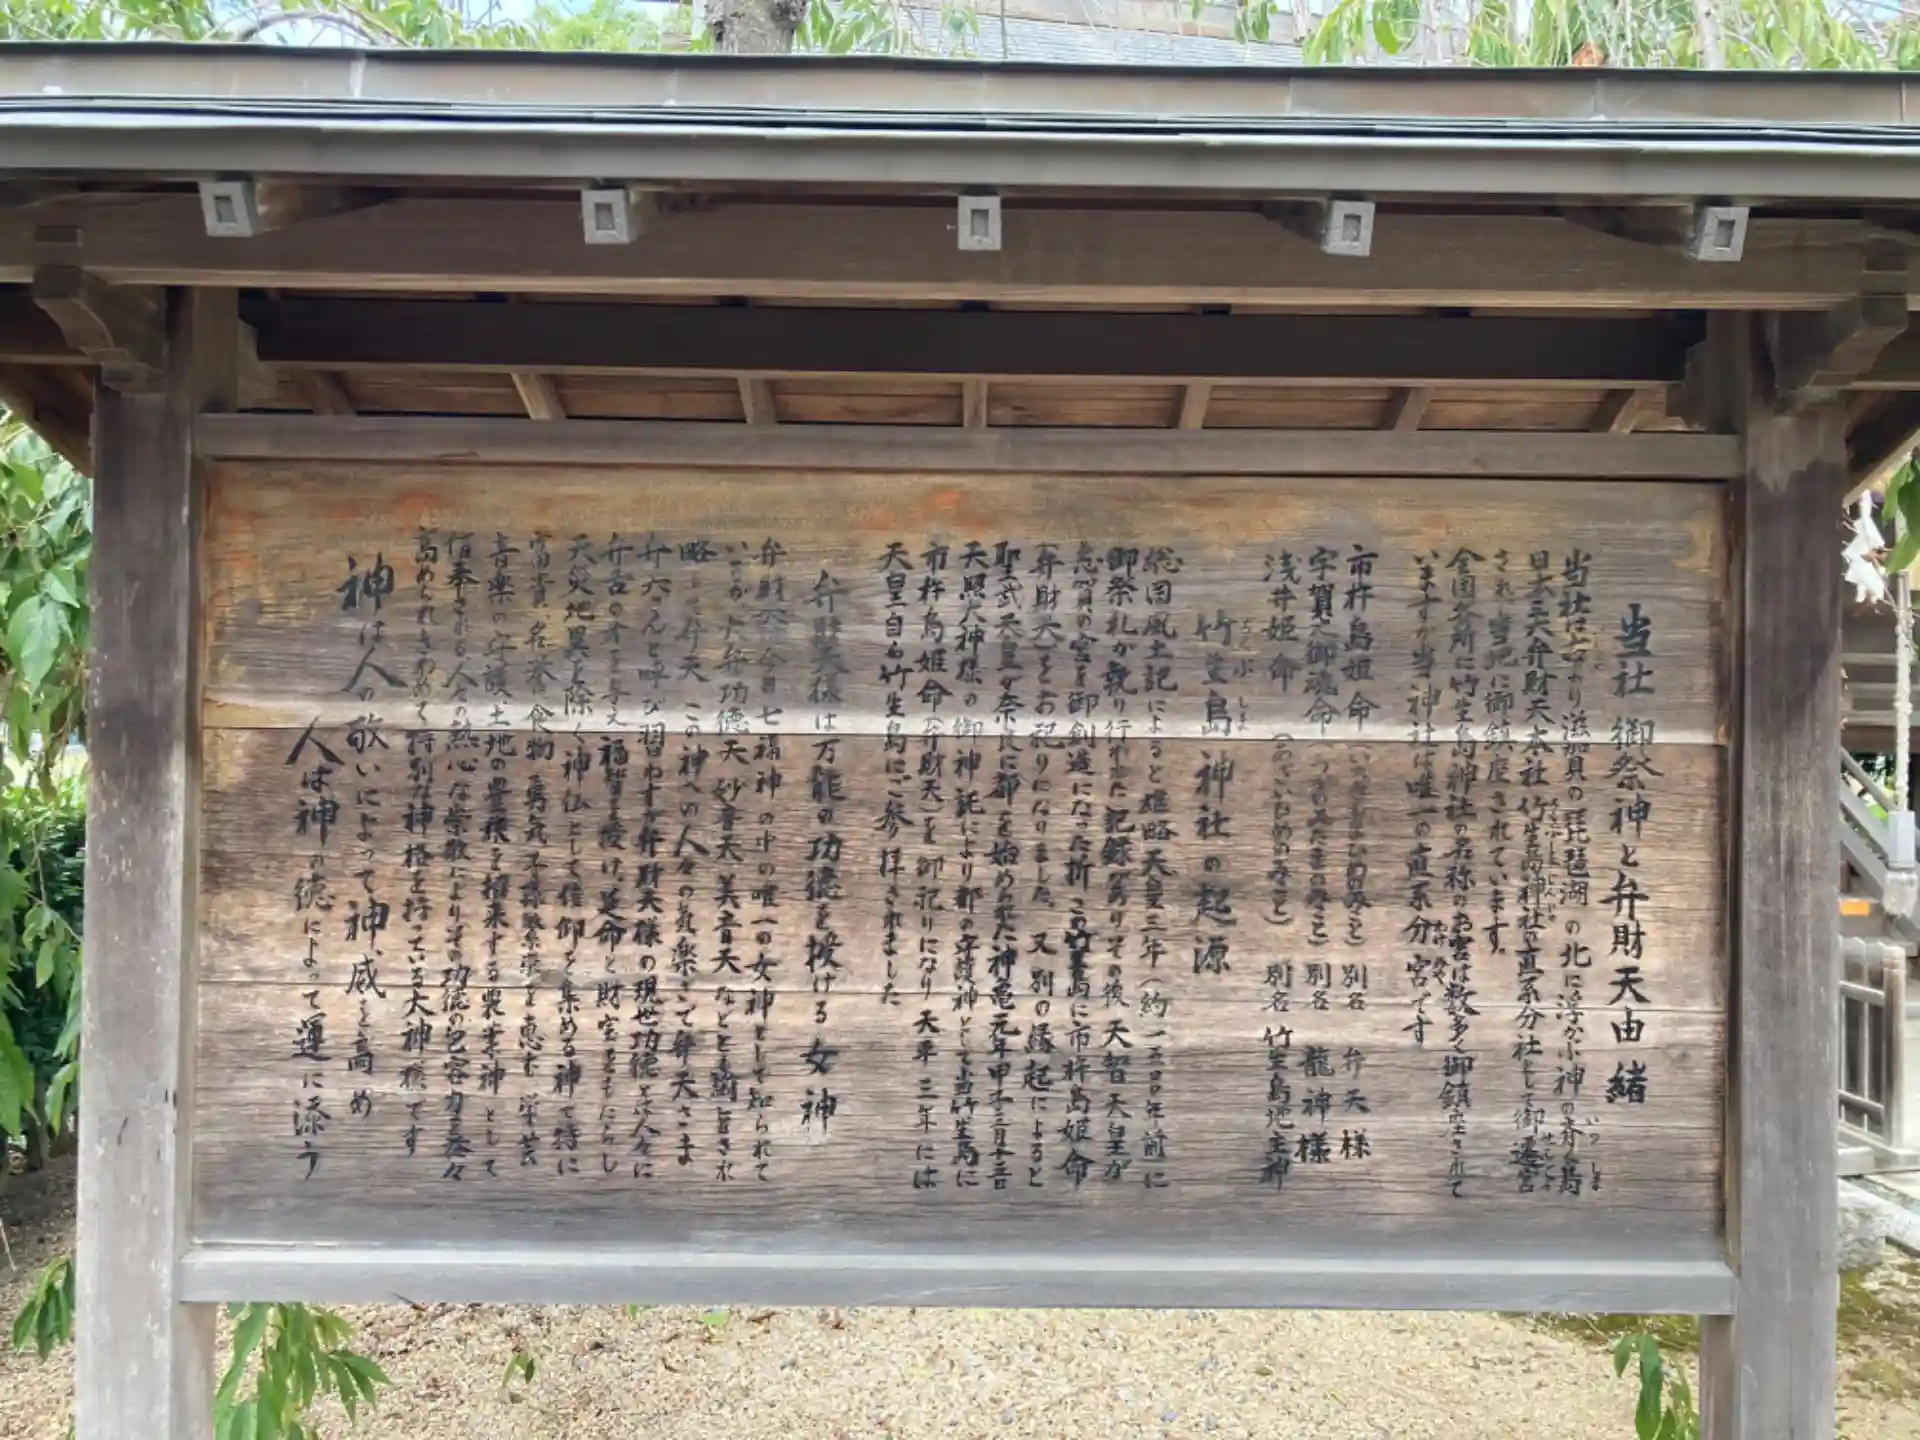 当社 御祭神と弁財天由緒
当社は より滋賀の琵琶湖の北に浮かぶ神の斉島
いつしま
日本三天弁財天本社 竹生島神社の直系分社として御遷宮
され当地に御鎮座されています。
全国各所に竹生島神社の名称のお宮は数多く御鎮座されて
いますが当神社は唯一の直系分宮です
市杵島姫命(いちきしまひめのみこと)別名 弁天様
宇賀御魂命(うかのみたまのみこと)別名 龍神様
浅井姫命 (あざいひめのみこと) 別名 竹生島地主神
竹生島神社の起源
ちくぶしま
総国風土記によると雄略天皇三年(約一五〇〇年前)に
御祭礼が執り行われた記録がありその後 天智天皇が
志賀の宮を御創造になった折 この竹生島に市杵島姫命
(弁財天)をお祀りになりました。又別の縁起によると
聖武天皇が奈良に都を始められた神亀元年甲子三月十三日
天照大神様の御神託により都の守護神として当竹生島に
市杵島姫命(弁財天)を御祀りになり 天平三年には
天皇自ら竹生島にご参拝されました
弁財天様は万能の功徳を授ける女神
弁財天は今日七福神の中の唯一の女神として知られて
いるが、大弁功徳天 妙音天 美音天などとも訳され
略して弁天 この神への人々の気楽さで弁天さま
弁天さんと呼び習わす弁財天様の現世功徳は人々に
弁舌の才を与え 福智を授け、延命と財宝をもたらし
天災地異を除く神仏として信仰を集める神で特に
富貴、名誉、食物 勇気 子孫繁栄を恵む 学芸
音楽の守護、土地の豊穣を招来する農業神として
信奉される人々の熱心な崇敬によりその功徳の包容力は益々
高められきわめて特別な神格を持っている大神様です
神は人の敬いによって神威を高め
人は神の徳によって運に添う